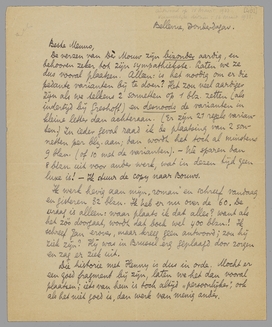 Bellevue, Donderdag.
Beste Menno,
De verzen van De Mouw zijn bizonder aardig, en
behooren zeker tot zijn sympathiekste. Laten we ze
dus vooral plaatsen. Alleen: is het noodig om er die
pedante varianten bij te doen? Het zou veel aardiger
zijn als we telkens 2 sonnetten op 1 blz. zetten (als
indertijd bij Greshoff) en desnoods de varianten in
kleine letter dan achteraan. (Er zijn 27 regels varian-
ten.) In ieder geval raad ik de plaatsing van 2 son-
netten per blz. aan; dan wordt het toch al minstens
9 blzn. (of 10 met de varianten). – We sparen dan
8 blzn. uit voor ander werk, wat in dezen tijd geen
luxe is! – Ik stuur de copy naar Bouws.
Ik werk hevig aan mijn roman en schreef vandaag
en gisteren 32 blzn. Ik heb er nu over de 60. De
vraag is alleen: waar plaats ik dat alles? want als
het zoo doorgaat, wordt dat boek wel 400 blzn! Ik
schreef Jan erover, maar kreeg geen antwoord; zou hij
ziek zijn? Hij was in Brussel erg geplaagd door zorgen
en zag er ziek uit.
Die historie met Henny is dus in orde. Mocht er
een goed fragment bij zijn, laten we het dan vooral
plaatsen; iets van hem is toch altijd "persoonlijker", ook
als het niet goed is, dan werk van menig ander.